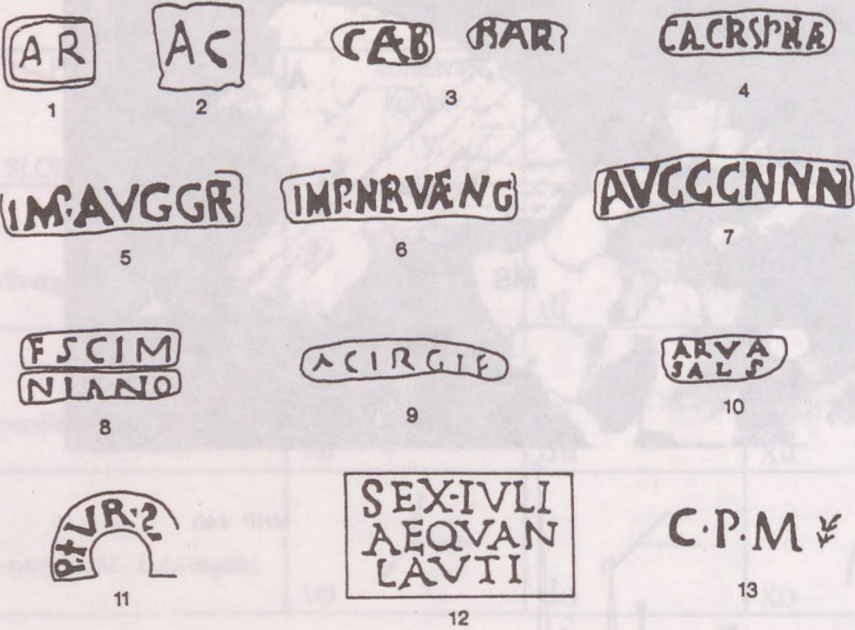 AR
1
AC
2
CÆB
BAR
3
CACRSPNÆ
4
IMP·AVGGR
5
IMP·NRVÆNG
6
AVGGGNNN
7
FSCIM
NIANO
8
ACIRGIF
9
ARVA
SALS
10
VR·
11
SEX·IVLI
AEQVAN
LAVTI
12
C·P·M
13